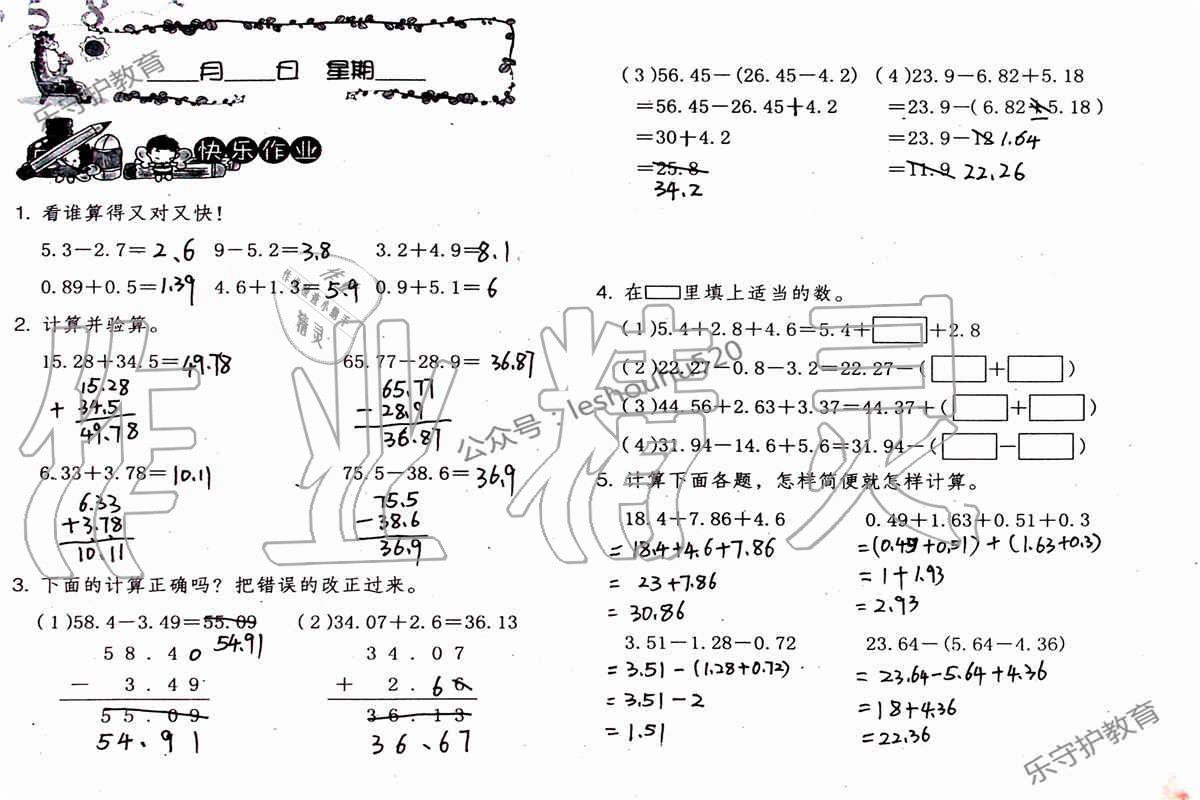 58
____月____日 星期____
快乐作业
1. 看谁算得又对又快!
5.3-2.7=2.6 9-5.2=3.8 3.2+4.9=8.1
0.89+0.5=1.39 4.6+1.3=5.9 0.9+5.1=6
2. 计算并验算。
15.28+34.5=49.78 65.77-28.9=36.87
15.28 65.77
+ 34.5 - 28.9
49.78 36.87
6.33+3.78=10.11 75.5-38.6=36.9
6.33 75.5
+3.78 -38.6
10.11 36.9
3. 下面的计算正确吗?把错误的改正过来。
(1)58.4-3.49=55.09 (2)34.07+2.6=36.13
54.91
58.40 34.07
- 3.49 + 2.66
55.09 36.13
54.91 36.67
(3)56.45-(26.45-4.2) (4)23.9-6.82+5.18
=56.45-26.45+4.2 =23.9-(6.82+5.18)
=30+4.2 =23.9-181.64
=25.8 =11.9 22.26
34.2
4. 在□里填上适当的数。
(1)5.4+2.8+4.6=5.4+□+2.8
(2)22.27-0.8-3.2=22.27-(□+□)
(3)44.56+2.63+3.37=44.37+(□+□)
(4)31.94-14.6+5.6=31.94-(□-□)
5. 计算下面各题,怎样简便就怎样计算。
18.4+7.86+4.6 0.49+1.63+0.51+0.3
=18.4+4.6+7.86 =(0.49+0.51)+(1.63+0.3)
=23+7.86 =1+1.93
=30.86 =2.93
3.51-1.28-0.72 23.64-(5.64-4.36)
=3.51-(1.28+0.72) =23.64-5.64+4.36
=3.51-2 =18+4.36
=1.51 =22.36
乐守护教育
作业精灵
公众号:leshouhu520
乐守护教育